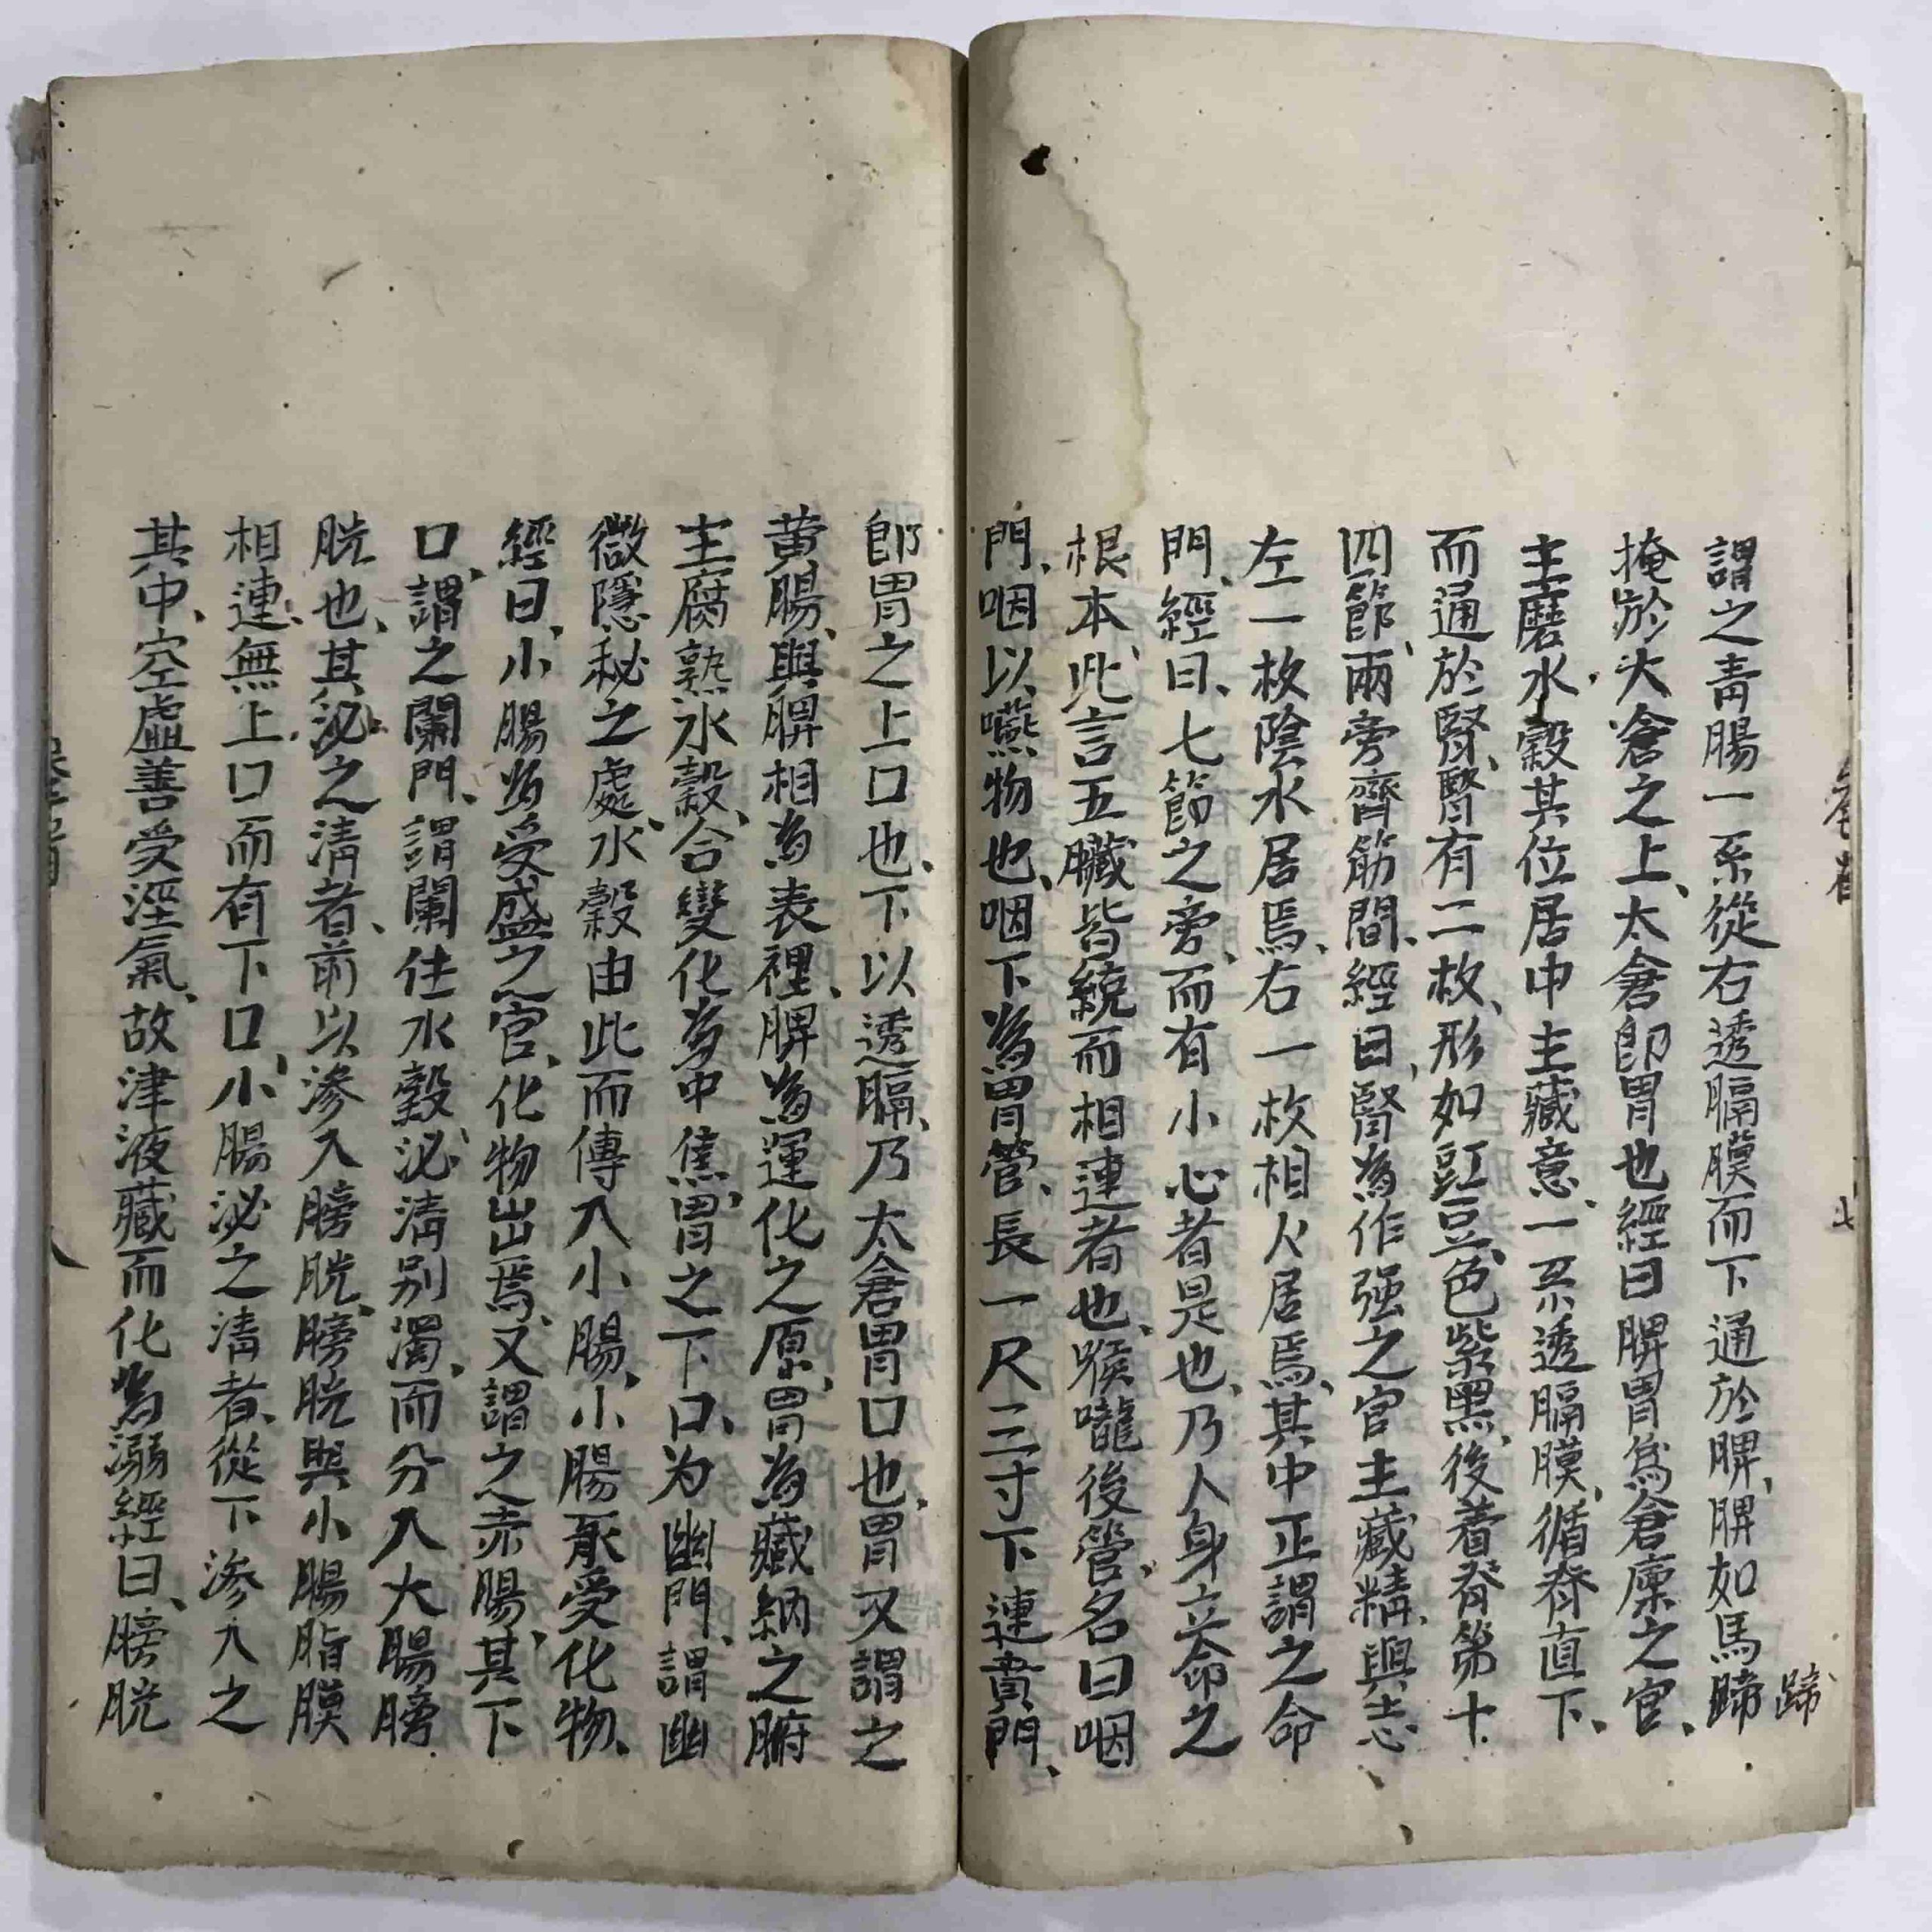 蹄
謂之青腸一系從右透膈膜而下通於脾、脾如馬蹄
掩於大倉之上、太倉卽胃也經曰脾胃爲倉廩之官、
主磨水穀其位居中主藏意、一系透膈膜、循脊直下、
而通於腎、腎有二枚、形如豇豆、色紫黑、後着脊第十
四節、兩旁齊筋間、經曰、腎為作强之官主藏精、與志
左一枚陰水居焉、右一枚相火居焉、其中正謂之命
門、經曰、七節之旁、而有小心者是也、乃人身立命之
根本、此言五臟皆統而相連者也、喉嚨後管、名曰咽
門、咽以嚥物也、咽下為胃管、長一尺三寸下連賁門、
卽胃之上口也、下以透膈、乃太倉胃口也、胃又謂之
黄腸、與脾相為表裡、脾為運化之原、胃為藏納之腑
主腐熟水穀、合變化為中焦、胃之下口、为幽門、謂幽
微隱秘之處、水穀由此而傳入小腸、小腸承受化物、
經曰、小腸為受盛之官、化物出焉、又謂之赤腸、其下
口、謂之闌門、謂闌住水穀泌清別濁、而分入大腸膀
胱也、其泌之清者、前以滲入膀胱、膀胱與小腸脂膜
相連、無上口而有下口、小腸泌之清者、從下滲入之
其中、空虛善受溼氣、故津液藏而化為溺經曰、膀胱
七
八